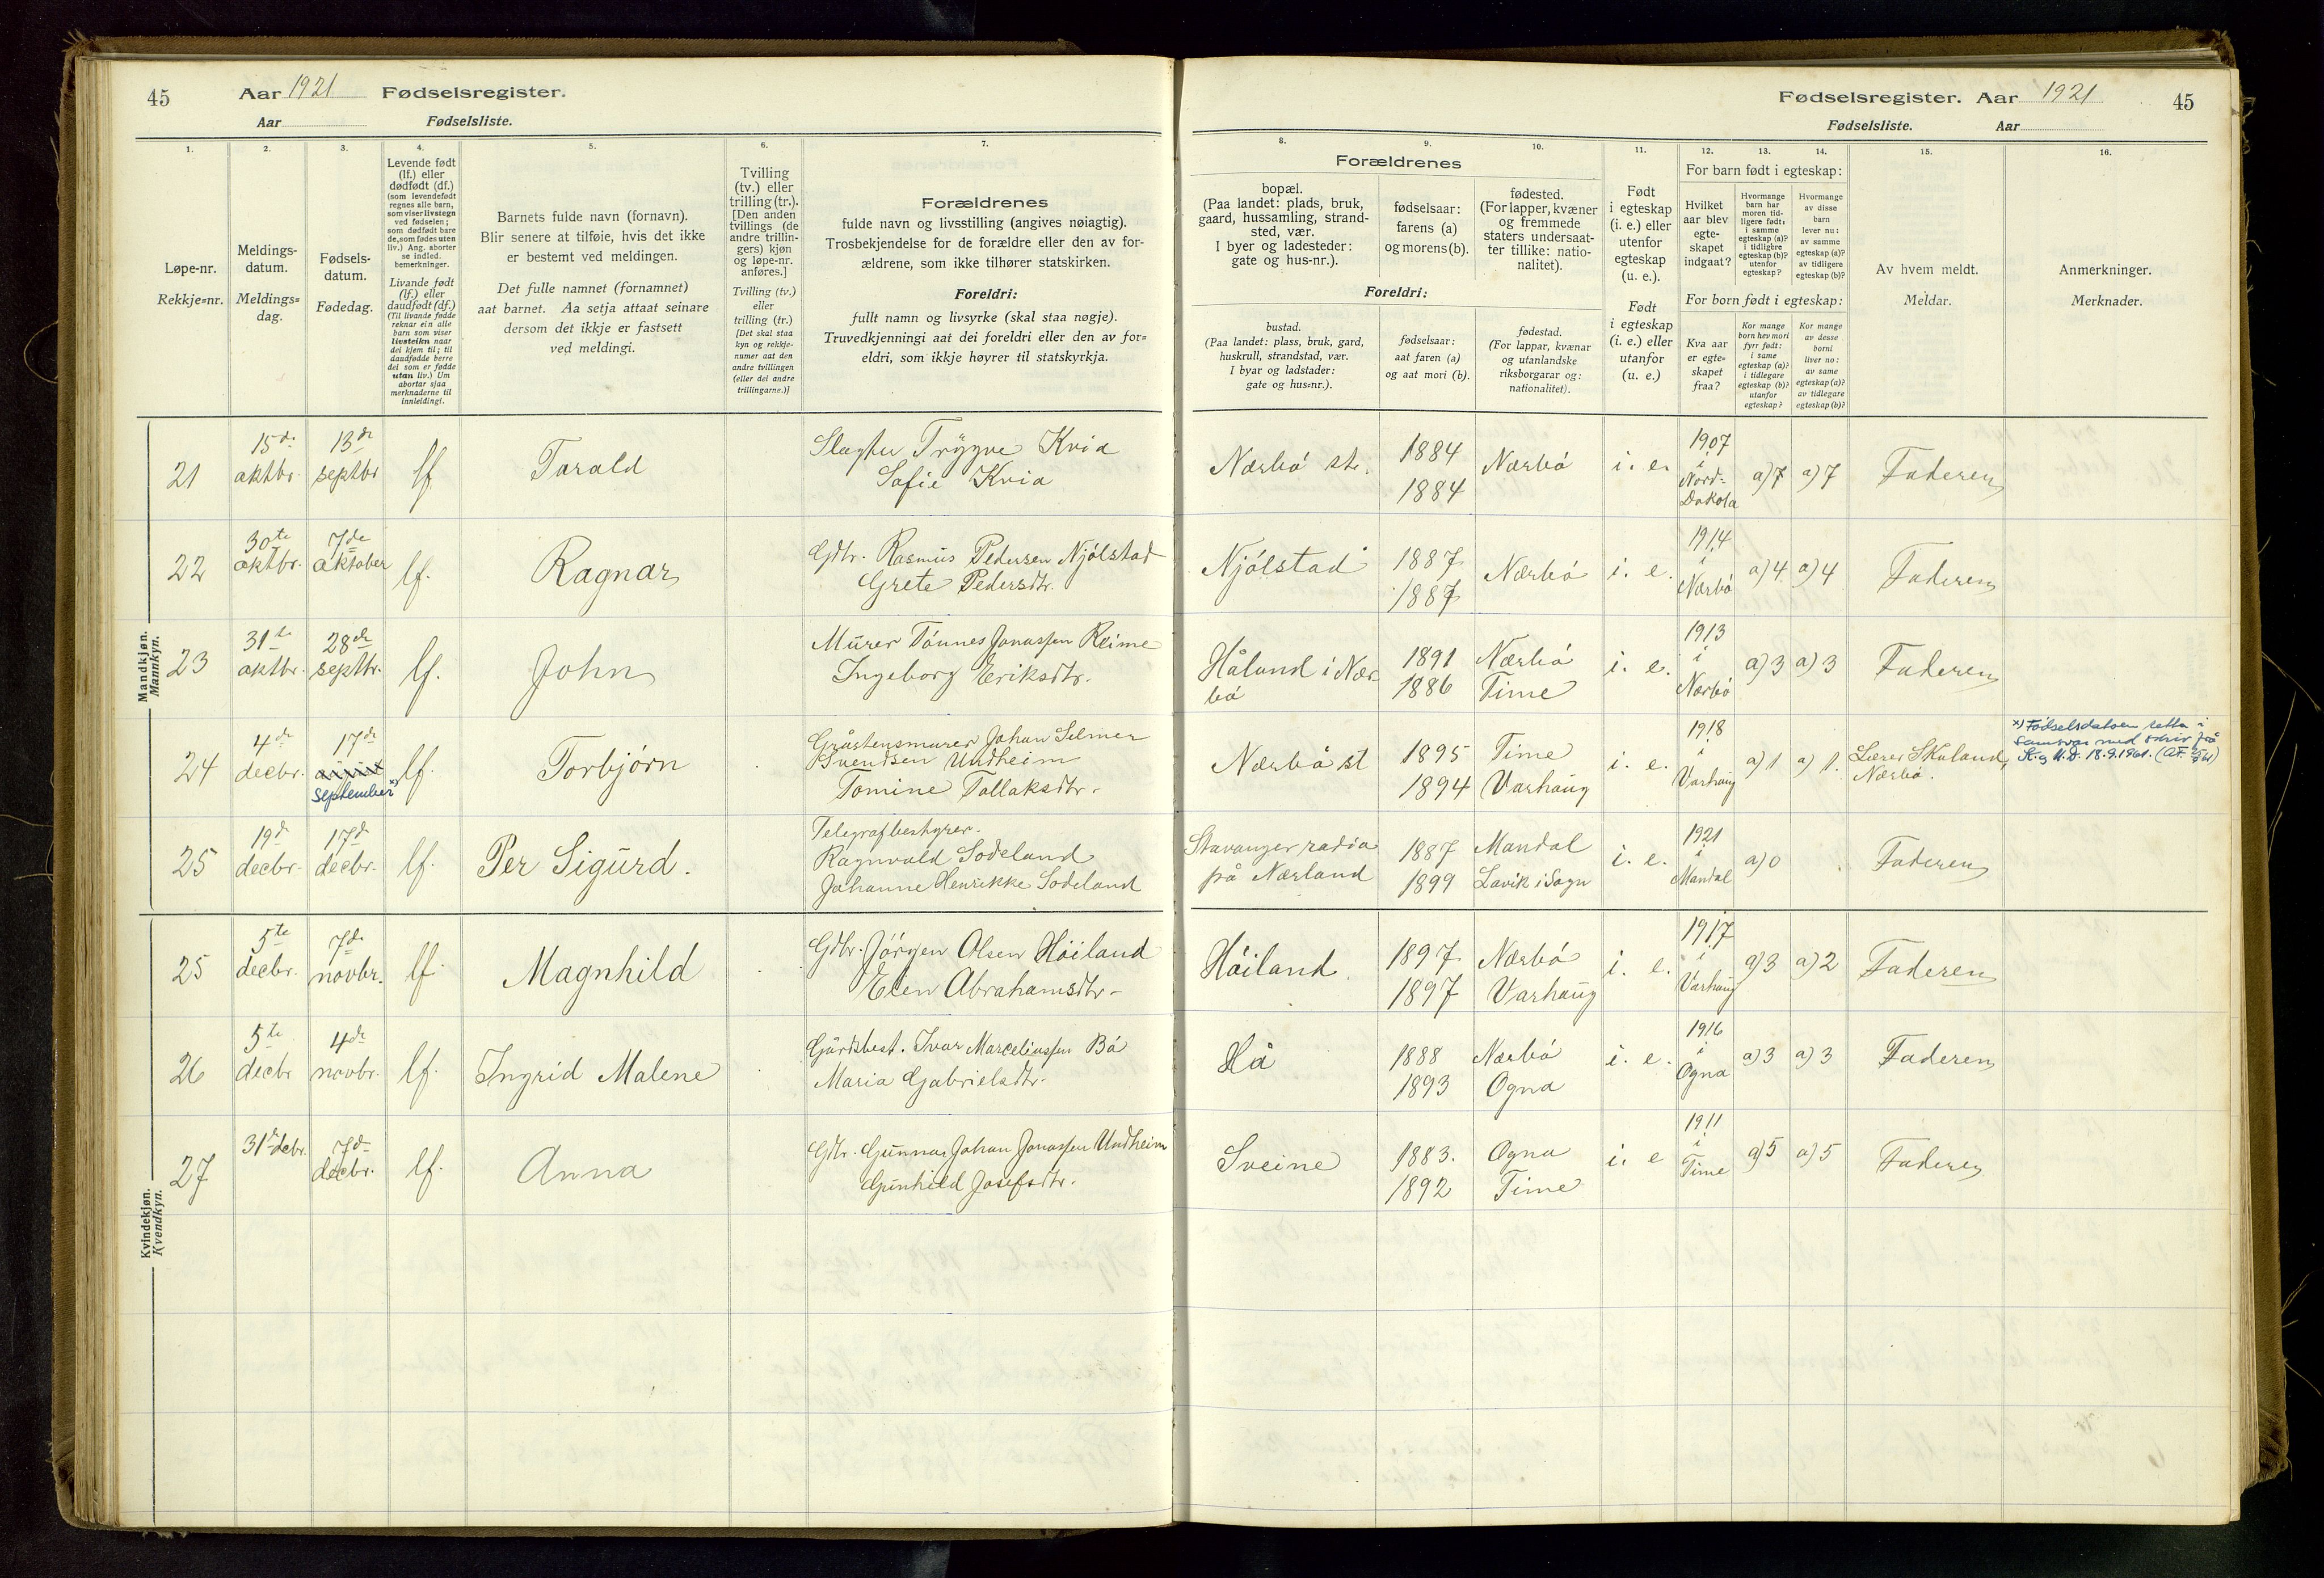 45
Aar 1921 Fødselsregister.
Aar Fødselsliste.
1. 2. 3. 4. 5. 6. 7.
Løpe-nr.
Rekkje=nr.
Meldings-
datum.
Meldings=
dag.
Fødsels-
datum.
Fødedag.
Levende født
(lf.) eller
dødfødt (df.)
(som levendefødt
regnes alle barn,
som viser livstegn
ved fødselen;
som dødfødt bare
de, som fødes uten
liv.) Ang. aborter
se indled.
bemerkninger.
Livande født
(lf.) eller
daudfødt (df.)
(Til livande fødde
reknar ein alle
born som viser
livsteikn naar
dei kjem til; til
daudfødde berre
dei som er fødde
utan liv.) Um
abortar sjaa
merknaderne til
innleidingi.
Barnets fulde navn (fornavn).
Blir senere at tilføie, hvis det ikke
er bestemt ved meldingen.
Det fulle namnet (fornamnet)
aat barnet. Aa setja attaat seinare
dersom det ikkje er fastsett
ved meldingi.
Tvilling
(tv.) eller
trilling (tr.).
[Den anden
tvillings (de
andre trillin-
gers) kjøn
og løpe-nr.
anføres.]
Tvilling (tv.)
eller
trilling (tr.)
[Det skal staa
kyn og rekkje-
numer aat den
andre tvillingen
(eller dei andre
trillingarne.)]
Forældrenes
fulde navn og livsstilling (angives nøiagtig).
Trosbekjendelse for de forældre eller den av for-
ældrene, som ikke tilhører statskirken.
Foreldri:
fullt namn og livsyrke (skal staa nøgje).
Truvedkjenningi aat dei foreldri eller den av for=
eldri, som ikkje høyrer til statskyrkja.
Mandkjøn.
Mannkyn.
21 15de oktbr. 13de septbr lf. Torald Slagter Trygve Kvia
Sofie Kvia
22 30te oktbr. 7de oktober lf. Ragnar Gdbr. Rasmus Pedersen Njølstad
Grete Pedersdtr.
23 31te oktbr. 28de septbr. lf. John Murer Tønnes Jonassen Reime
Ingeborg Eriksdtr.
24 4de decbr. 17de september x) lf. Torbjørn Gråstensmurer Johan Selmer
Svendsen Undheim
Tomine Tollaksdtr.
25 19de decbr. 17de decbr. lf. Per Sigurd. Telegrafbestyrer.
Ragnvald Sodeland
Johanne Henrikke Sodeland
Kvindekjøn.
Kvendkyn.
25 5te decbr. 7de novbr. lf. Magnhild Gdbr. Jørgen Olsen Høiland
Elen Abrahamsdtr.
26 5te decbr 4de novbr. lf. Ingrid Malene Gårdsbest. Ivar Marceliussen Bø
Maria Gabrielsdtr.
27 31te decbr. 7de decbr. lf. Anna Gdbr. Gunnar Johan Jonassen Undheim
Gunhild Josefsdtr.
Fødselsregister. Aar 1921 45
Fødselsliste. Aar
8. 9. 10. 11. 12. 13. 14. 15. 16.
Forældrenes
bopæl.
(Paa landet: plads, bruk,
gaard, hussamling, strand-
sted, vær.
I byer og ladesteder:
gate og hus-nr.).
fødselsaar:
farens (a)
og morens (b).
fødested.
(For lapper, kvæner
og fremmede
staters undersaat-
ter tillike: natio-
nalitet).
Foreldri:
bustad.
(Paa landet: plass, bruk, gard,
huskrull, strandstad, vær.
I byar og ladstader:
gate og hus=nr.).
fødselsaar:
aat faren (a)
og aat mori (b).
fødestad.
(For lappar, kvænar
og utanlandske
riksborgarar og:
nationalitet).
Født
i egteskap
(i. e.) eller
utenfor
egteskap
(u. e.).
Født
i egteskap
(i. e.) eller
utanfor
(u. e.)
For barn født i egteskap:
Hvilket
aar blev
egte-
skapet
indgaat?
Hvormange
barn har
moren tid-
ligere født:
i samme
egteskap (a)?
i tidligere
egteskap (b)?
utenfor
egteskap?
Hvormange
av disse
barn
lever nu:
av samme
egteskap (a)?
av tidligere
egteskap (b)?
For born født i egteskap:
Kva aar
er egte=
skapet
fraa?
Kor mange
born hev mori
fyrr født:
i same
egteskap (a)?
i tidlegare
egteskap (b)?
utanfor
egteskap?
Kor mange
av desse
borni
liver no:
av same
egteskap (a)?
av tidlegare
egteskap (b)?
Av hvem meldt.
Meldar.
Anmerkninger.
Merknader.
Nærbø st. 1884 1884 Nærbø i. e. 1907 i Nord-Dakota a) 7 a) 7 Faderen
Njølstad 1887 1887 Nærbø i. e. 1914 i Nærbø a) 4 a) 4 Faderen
Håland i Nær-
bø 1891 1886 Nærbø Time i. e. 1913 i Nærbø a) 3 a) 3 Faderen
Nærbø st 1895 1894 Time Varhaug i. e. 1918 i Varhaug a) 1 a) 1. Lærer Skaland,
Nærbø.
x) Fødselsdatoen retta i
samsvar med skriv frå
K. og U.D. 18.9.1961.
Stavanger radio
på Nærland 1887 1899 Mandal Lavik i Sogn i. e. 1921 i Mandal a) 0 Faderen
Høiland 1897 1897 Nærbø Varhaug i. e. 1917 i Varhaug a) 3 a) 2 Faderen
Hå 1888 1893 Nærbø Ogna i. e. 1916 i Ogna a) 3 a) 3 Faderen
Sveine 1883. 1892 Ogna Time i. e 1911 i Time a) 5 a) 5 Faderen